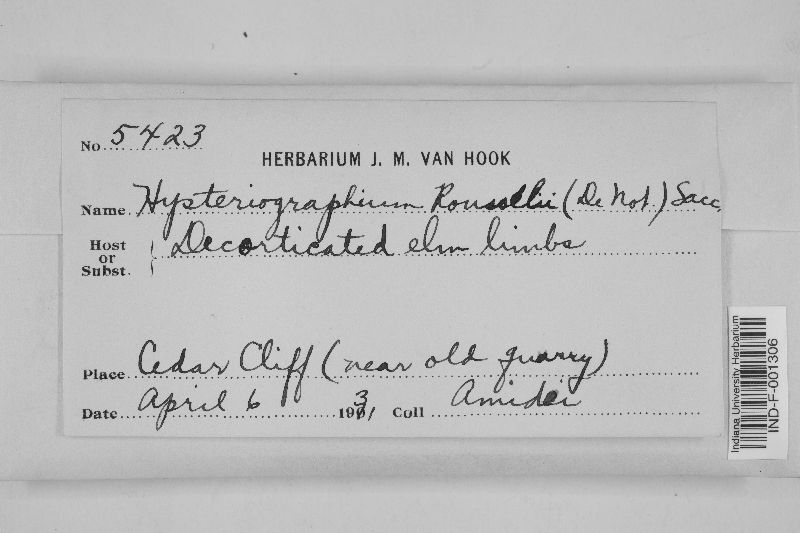 No. 5423
HERBARIUM J. M. VAN HOOK
Name. Hysteriographium Rousselii (De Not.) Sacc.
Host or Subst. Decorticated elm limbs
Place Cedar Cliff (near old quarry)
Date April 6 1931 Coll Amidei
Indiana University Herbarium
IND-F-001306